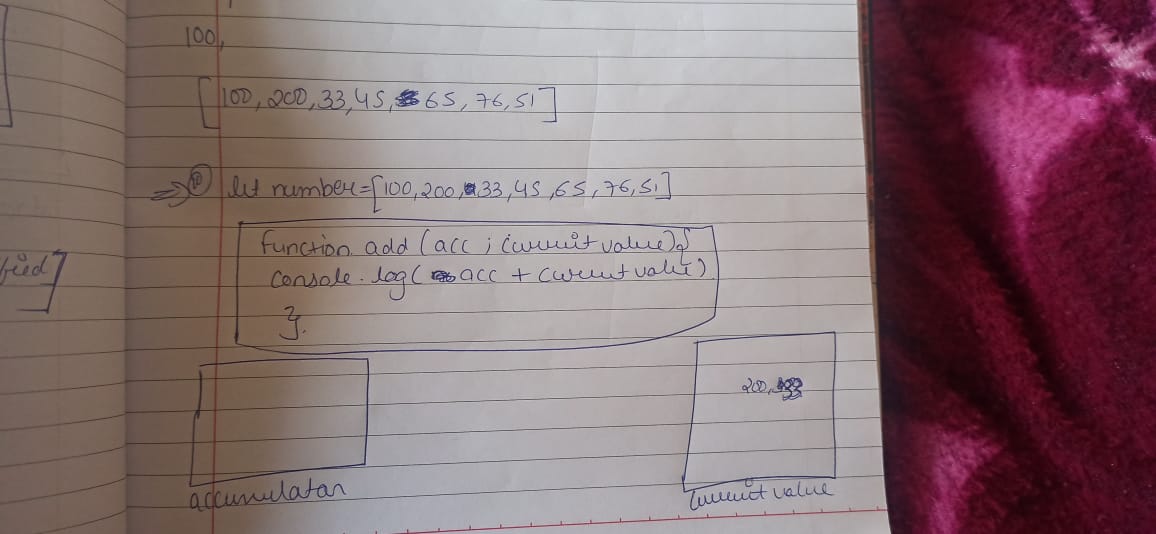 100,
[100, 200, 33, 45, 65, 76, 51]
⇒ let number=[100,200,33,45,65,76,51]
function add (acc ; current value){
console.log( acc + current value)
}.
200, 33
accumulatar
current value